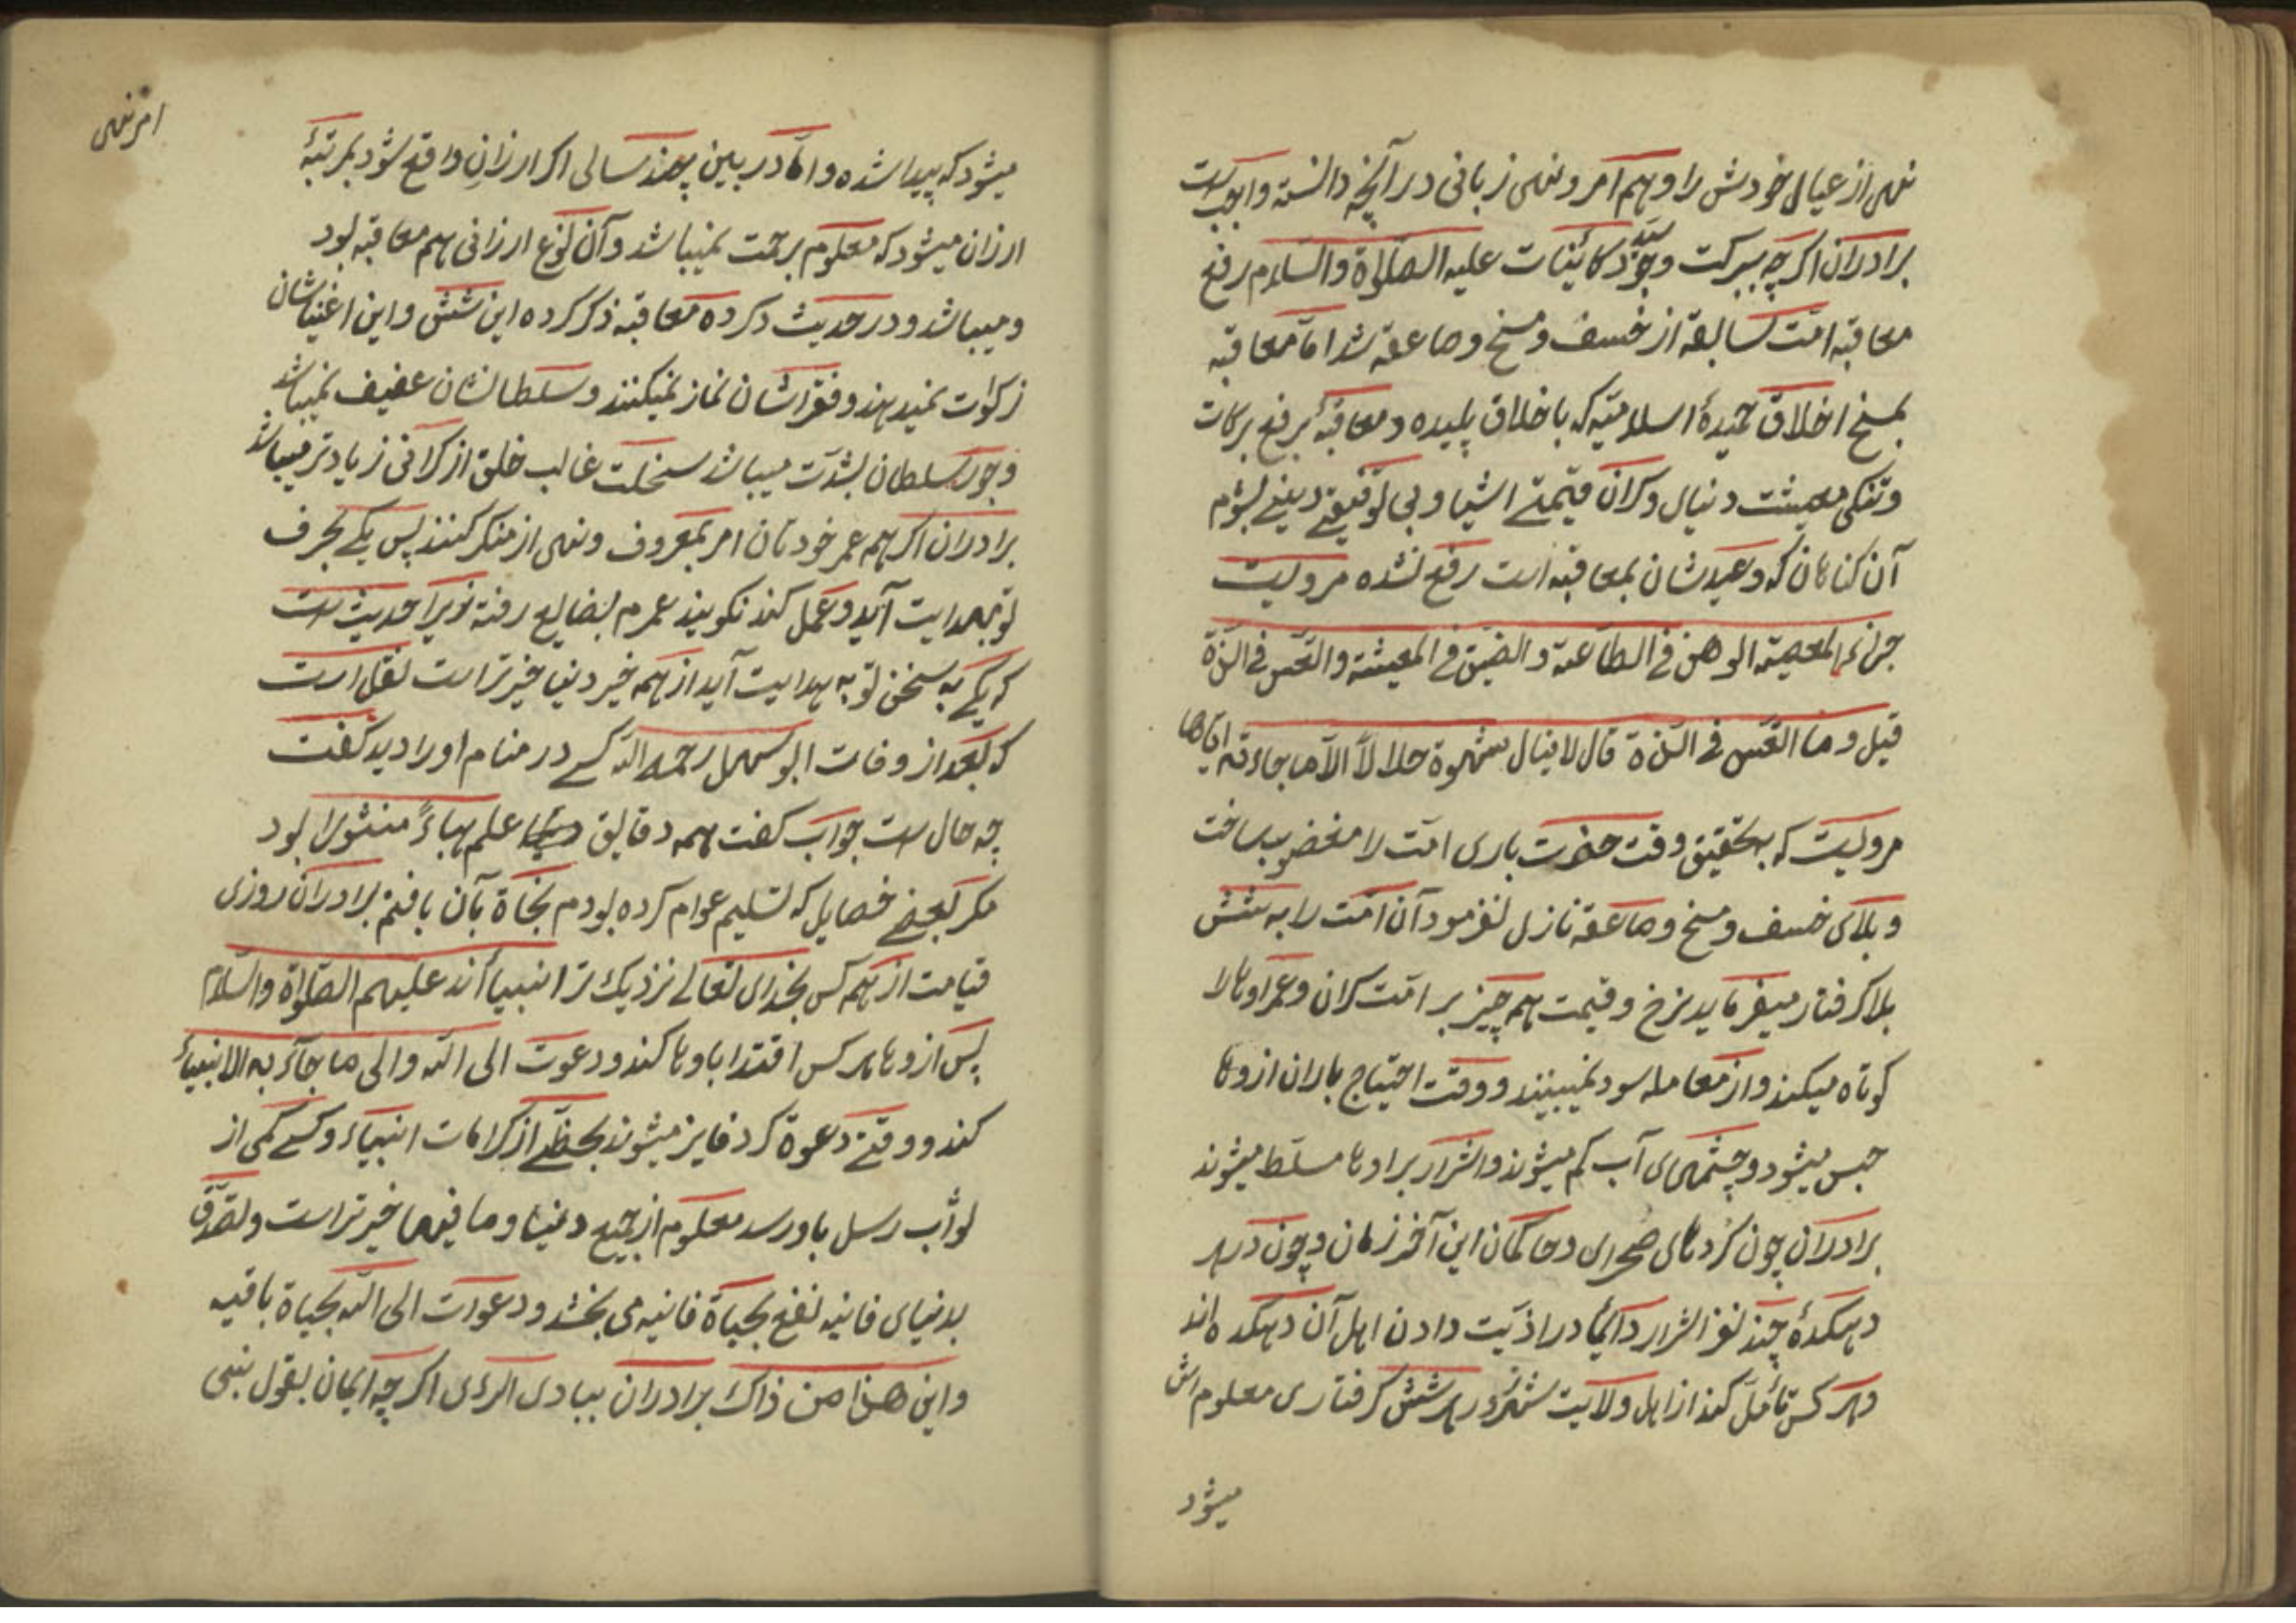 نهی از عیال خودش را و هم امر و نهی زبانی در آنچه دانسته واجب است
برادران اکرچه ببرکت وجود سید کائنات علیه الصلواة والسلام رفع
معاقبه امّت سابقه از خسف و مسخ و صاعقه شد امّا معاقبه
بمسخ اخلاق حمیدهٔ اسلامیّه که باخلاق پلیده و معاقبهٔ برفع برکات
وتنکی معیشت دنیا و کران قیمتے اشیا و بی توفیقے دینے بشوم
آن کناهان که وعیدشان بمعاقبه است رفع نشده مرویست
جزاء المعصیة الوهن فی الطاعة والضیق فی المعیشة والتعس فی اللذة
قیل وما التعس فی اللذة قال لا ینال شهوة حلالاً الا ما جاءته ایاها
مرویست که بتحقیق وقت حضرت باری امّت را مغضوب ساخت
وبلای خسف و مسخ و صاعقه نازل نفرمود آن امّت را به شش
بلا کرفتار میفرماید نرخ و قیمت همه چیز بر امّت کران و عمر اوها را
کوتاه میکند و از معامله سود نمیبینند و وقت احتیاج باران ازوها
حبس میشود و چشمهای آب کم میشوند واشرار بر اوها مسلط میشوند
برادران چون کردهای صحرای و حاکمان این آخر زمان و چون در هر
دهکدهٔ چند نفر اشرار دائما در اذیّت دادن اهل آن دهکده اند
وهر کس تأمّل کند از اهل ولایت شهرزور بهر شش کرفتاری معلوم اش
میشود
امر نهی
میشود که پیدا شده و امّا در بین چند سالی اکر ارزانی واقع شود بمرتبهٔ
ارزان میشود که معلوم برحمت نمیباشد و آن نوع ارزانی هم معاقبه بود
و میباشد و در حدیث ذکر ده معاقبه ذکر کرده این شش و این اغنیاشان
زکوات نمیدهند و فقراشان نماز نمیکنند و سلطانشان عفیف نمیباشد
وجور سلطان بشدّت میباشد سخلت غالب خلق از کرانی زیادتر میباشد
برادران اکر همه عمر خودتان امر بمعروف و نهی از منکر کنند پس یکے بحرف
تو بهدایت آید و عمل کند نکویند عمرم بضایع رفته زیرا حدیث است
که یکے به سخن تو به هدایت آید از همه خیر دنیا خیرتر است نقل است
که بعد از وفات ابو سهل رحمه الله کسے در منام او را دید کفت
چه حال است جواب کفت همه دقایق علم هباءً منثورا بود
مکر بعضے خصایل که تسلیم عوام کرده بودم نجاة بآن یافتم برادران روزی
قیامت از همه کس بخدای تعالے نزدیک تر انبیأ اند علیهم الصلواة والسلام
پس ازوها هر کس اقتدا باوها کند و دعوت الی الله والی ما جاء به الانبیاء
کند و وقتے دعوة کرد فایز میشوند بحظّے از کرامات انبیاء و کسے کمی از
ثوأب رسل باو رسد معلوم از جمیع دنیا و ما فیها خیرتر است و تصدّق
بدنیای فانیه نفع بحیاة فانیه می بخشد و دعوات الی الله بحیاة باقیه
واین هذا من ذاک برادران ببادی الرءی اکرچه ایمان بقول نبی